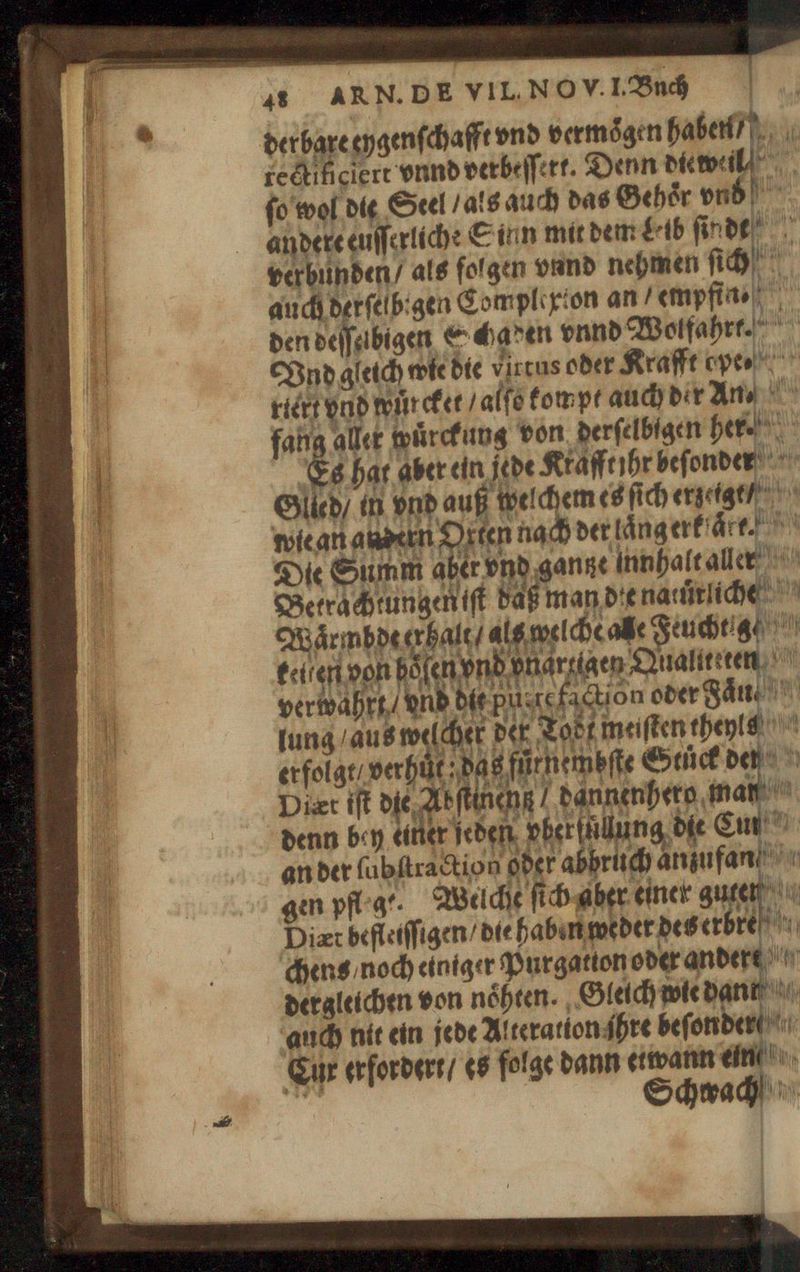 48 ARN. DE VIL. NOV. I. Buch
derbare eygenſchafft vnd vermoͤgen haben/
rectificiert vnnd verbeſſert. Denn dieweil
ſo wol die Seel / als auch das Gehoͤr vnd
andere euſſerliche Sinn mit dem Leib ſindt
verbunden / als folgen vnnd nehmen ſich
auch derſelbigen Complexion an / empfin⸗
den deſſelbigen Schaden vnnd Wolfahrt.
Vnd gleich wie die virtus oder Krafft ope⸗
riert vnd wuͤrcket / alſo kompt auch der An⸗
fang aller wuͤrckung von derſelbigen her.
Es hat aber ein jede Krafft jhr beſonder
Glied / in vnd auß welchem es ſich erzeigt /
wie an andern Orten nach der laͤng erklaͤrt.
Die Summ aber vnd gantze innhalt aller
Betrachtungen iſt daß man die natuͤrliche
Waͤrmbde erhalt / als welche alle Feuchtig⸗
keiten von boͤſen vnd vnartigen Qualiteten
verwahrt / vnd die putrefaction oder Faͤu⸗
lung / aus welcher der Todt meiſten theyls
erfolgt / verhuͤt: das fuͤrnembſte Stuͤck der
Diæt iſt die Abſtinentz / dannenhero man
denn bey einer jeden vberfuͤllung die Cur
an der ſubſtraction oder abbruch anzufan⸗
gen pflegt. Welche ſich aber einer guten
Diæt befleiſſigen / die haben weder des erbre⸗
chens / noch einiger Purgation oder andere
dergleichen von noͤhten. Gleich wie dann
auch nit ein jede Alteration jhre beſondere
Cur erfordert / es folge dann etwann ein
Schwach⸗